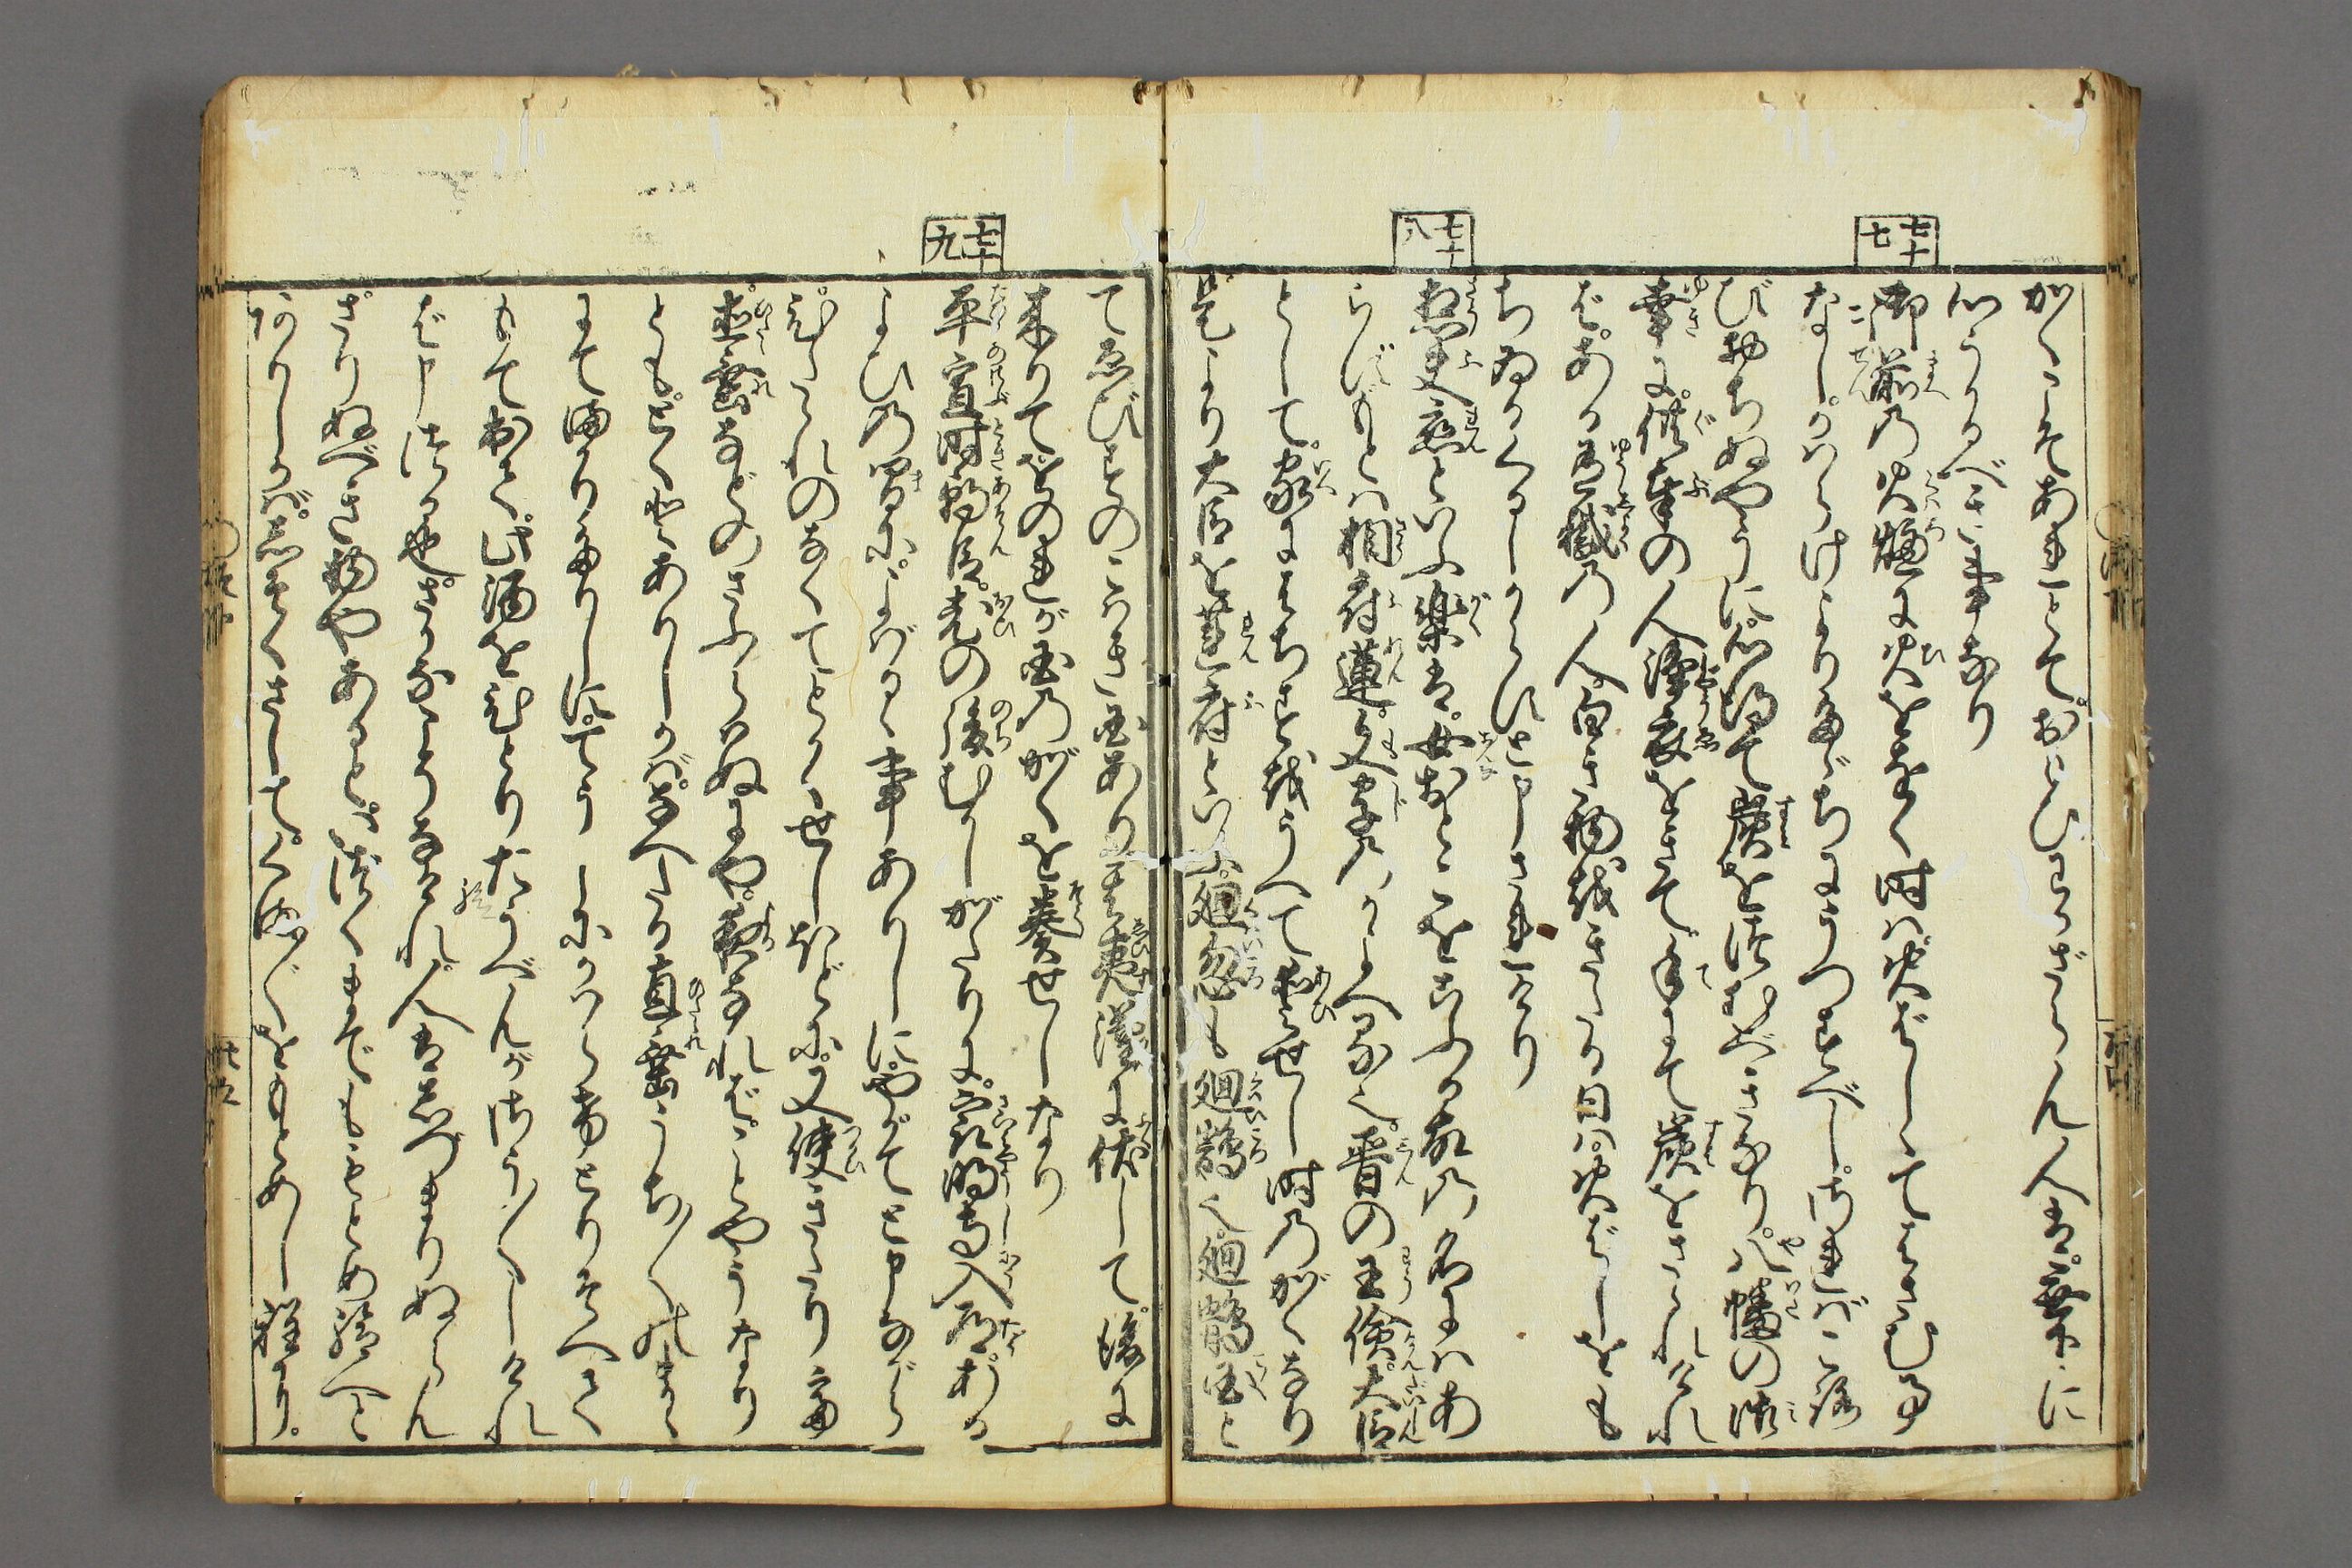 七十七
七十八
七十九
かくこそあれとて。おもひわかざらん人は。無下に
心うかるべき事なり
御前の火爐に火をおく時は火ばしゝてはさむ事
なし。かはらけよりたゞちにうつすべし。さればころ
びおちぬやうに。心得て炭をつむべきなり。八幡の御
幸に。供奉の人浄衣をきて。手にて炭をさゝれけれ
ば。ある有職の人。白き物をきたる日は。火ばしをも
ちゐるくるしからずと申されけり
想夫恋といふ楽は。女おとこをこふる故の名にはあ
らず。もとは相府蓮。文字のかよへる也。晋の王倹。大臣
として。家にはちすをうへて愛せし時のがくなり
是より大臣を蓮府といふ。廻忽も廻鶻也。廻鶻国と
てゑびすのこはき国あり其夷漢に伏して。後に
来りて。をのれが国のがくを奏せしなり
平宣時朝臣。老の後むかしがたりに。最明寺入道。ある
よひの間に。よばるゝ事ありしに。やがてと申ながら
ひたゝれのなくてとかくせしほどに。又使きたりて
直垂などのさふらはぬにや。夜なればことやうなり
とも。とくとありしかば。なへたる直垂うち〳〵のまゝ
にてまかりたりしに。てうしにかはらけとりそへて
もて出て。此酒をひとりたうべんがさう〴〵しけれ
ば申つる也。さかなこそなけれ。人はしづまりぬらん
さりぬべき物やあると。いづくまでももとめ給へと
ありしかば。しそくさして。くま〴〵をもとめし程に。